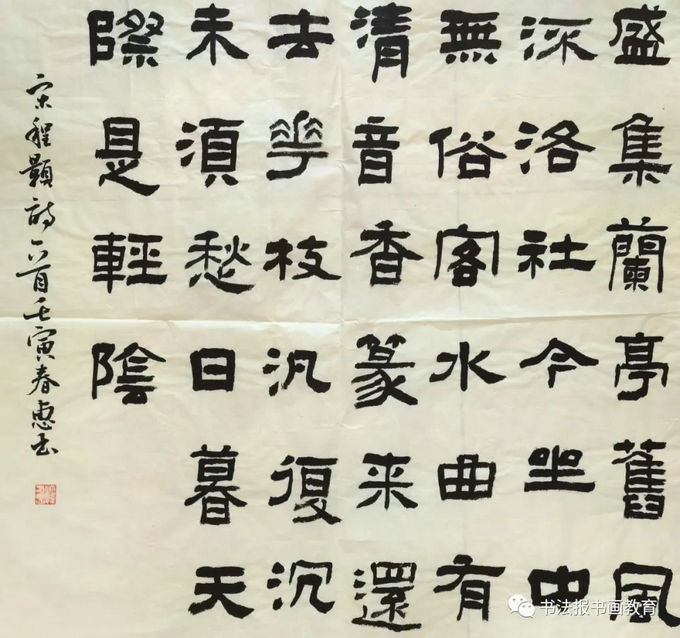 盛集蘭亭舊風
流洛社今坐中
無俗客水曲有
清音香篆来還
去華枝汎復沉
未須愁日暮天
際是輕陰
宋程顥詩一首壬寅春惠书
书法报书画教育